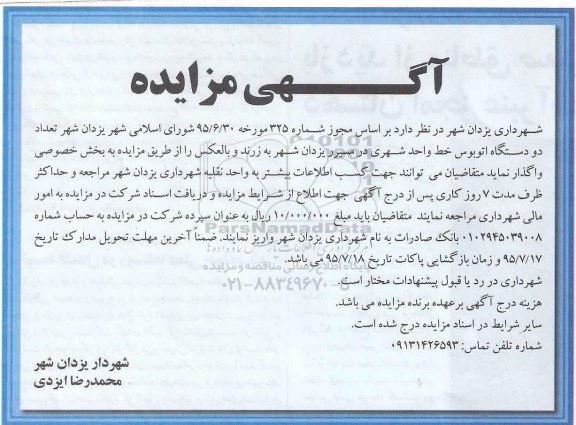 آگهی مزایده
شهرداری یزدان شهر در نظر دارد بر اساس مجوز شماره ۳۲۵ مورخه ۹۵/۶/۳۰ شورای اسلامی شهر یزدان شهر تعداد
دو دستگاه اتوبوس خط واحد شهری در مسیر یزدان شهر به زرند و بالعکس را از طریق مزایده به بخش خصوصی
واگذار نماید متقاضیان می توانند جهت کسب اطلاعات بیشتر به واحد نقلیه شهرداری یزدان شهر مراجعه و حداکثر
ظرف مدت ۷ روز کاری پس از درج آگهی جهت اطلاع از شرایط مزایده و دریافت اسناد شرکت در مزایده به امور
مالی شهرداری مراجعه نمایند متقاضیان باید مبلغ ۱۰/۰۰۰/۰۰۰ ریال به عنوان سپرده شرکت در مزایده به حساب شماره
۰۱۰۲۹۴۵۰۳۹۰۰۸ بانک صادرات به نام شهرداری یزدان شهر واریز نمایند. ضمناً آخرین مهلت تحویل مدارک تاریخ
۹۵/۷/۱۷ و زمان بازگشایی پاکات تاریخ ۹۵/۷/۱۸ می باشد.
شهرداری در رد یا قبول پیشنهادات مختار است.
هزینه درج آگهی برعهده برنده مزایده می باشد.
سایر شرایط در اسناد مزایده درج شده است.
شماره تلفن تماس: ۰۹۱۳۱۴۲۶۵۹۳
شهردار یزدان شهر
محمدرضا ایزدی
ParsNamadData
پایگاه اطلاع رسانی مناقصه و مزایده
۰۲۱-۸۸۳۴۹۶۷۰-۵